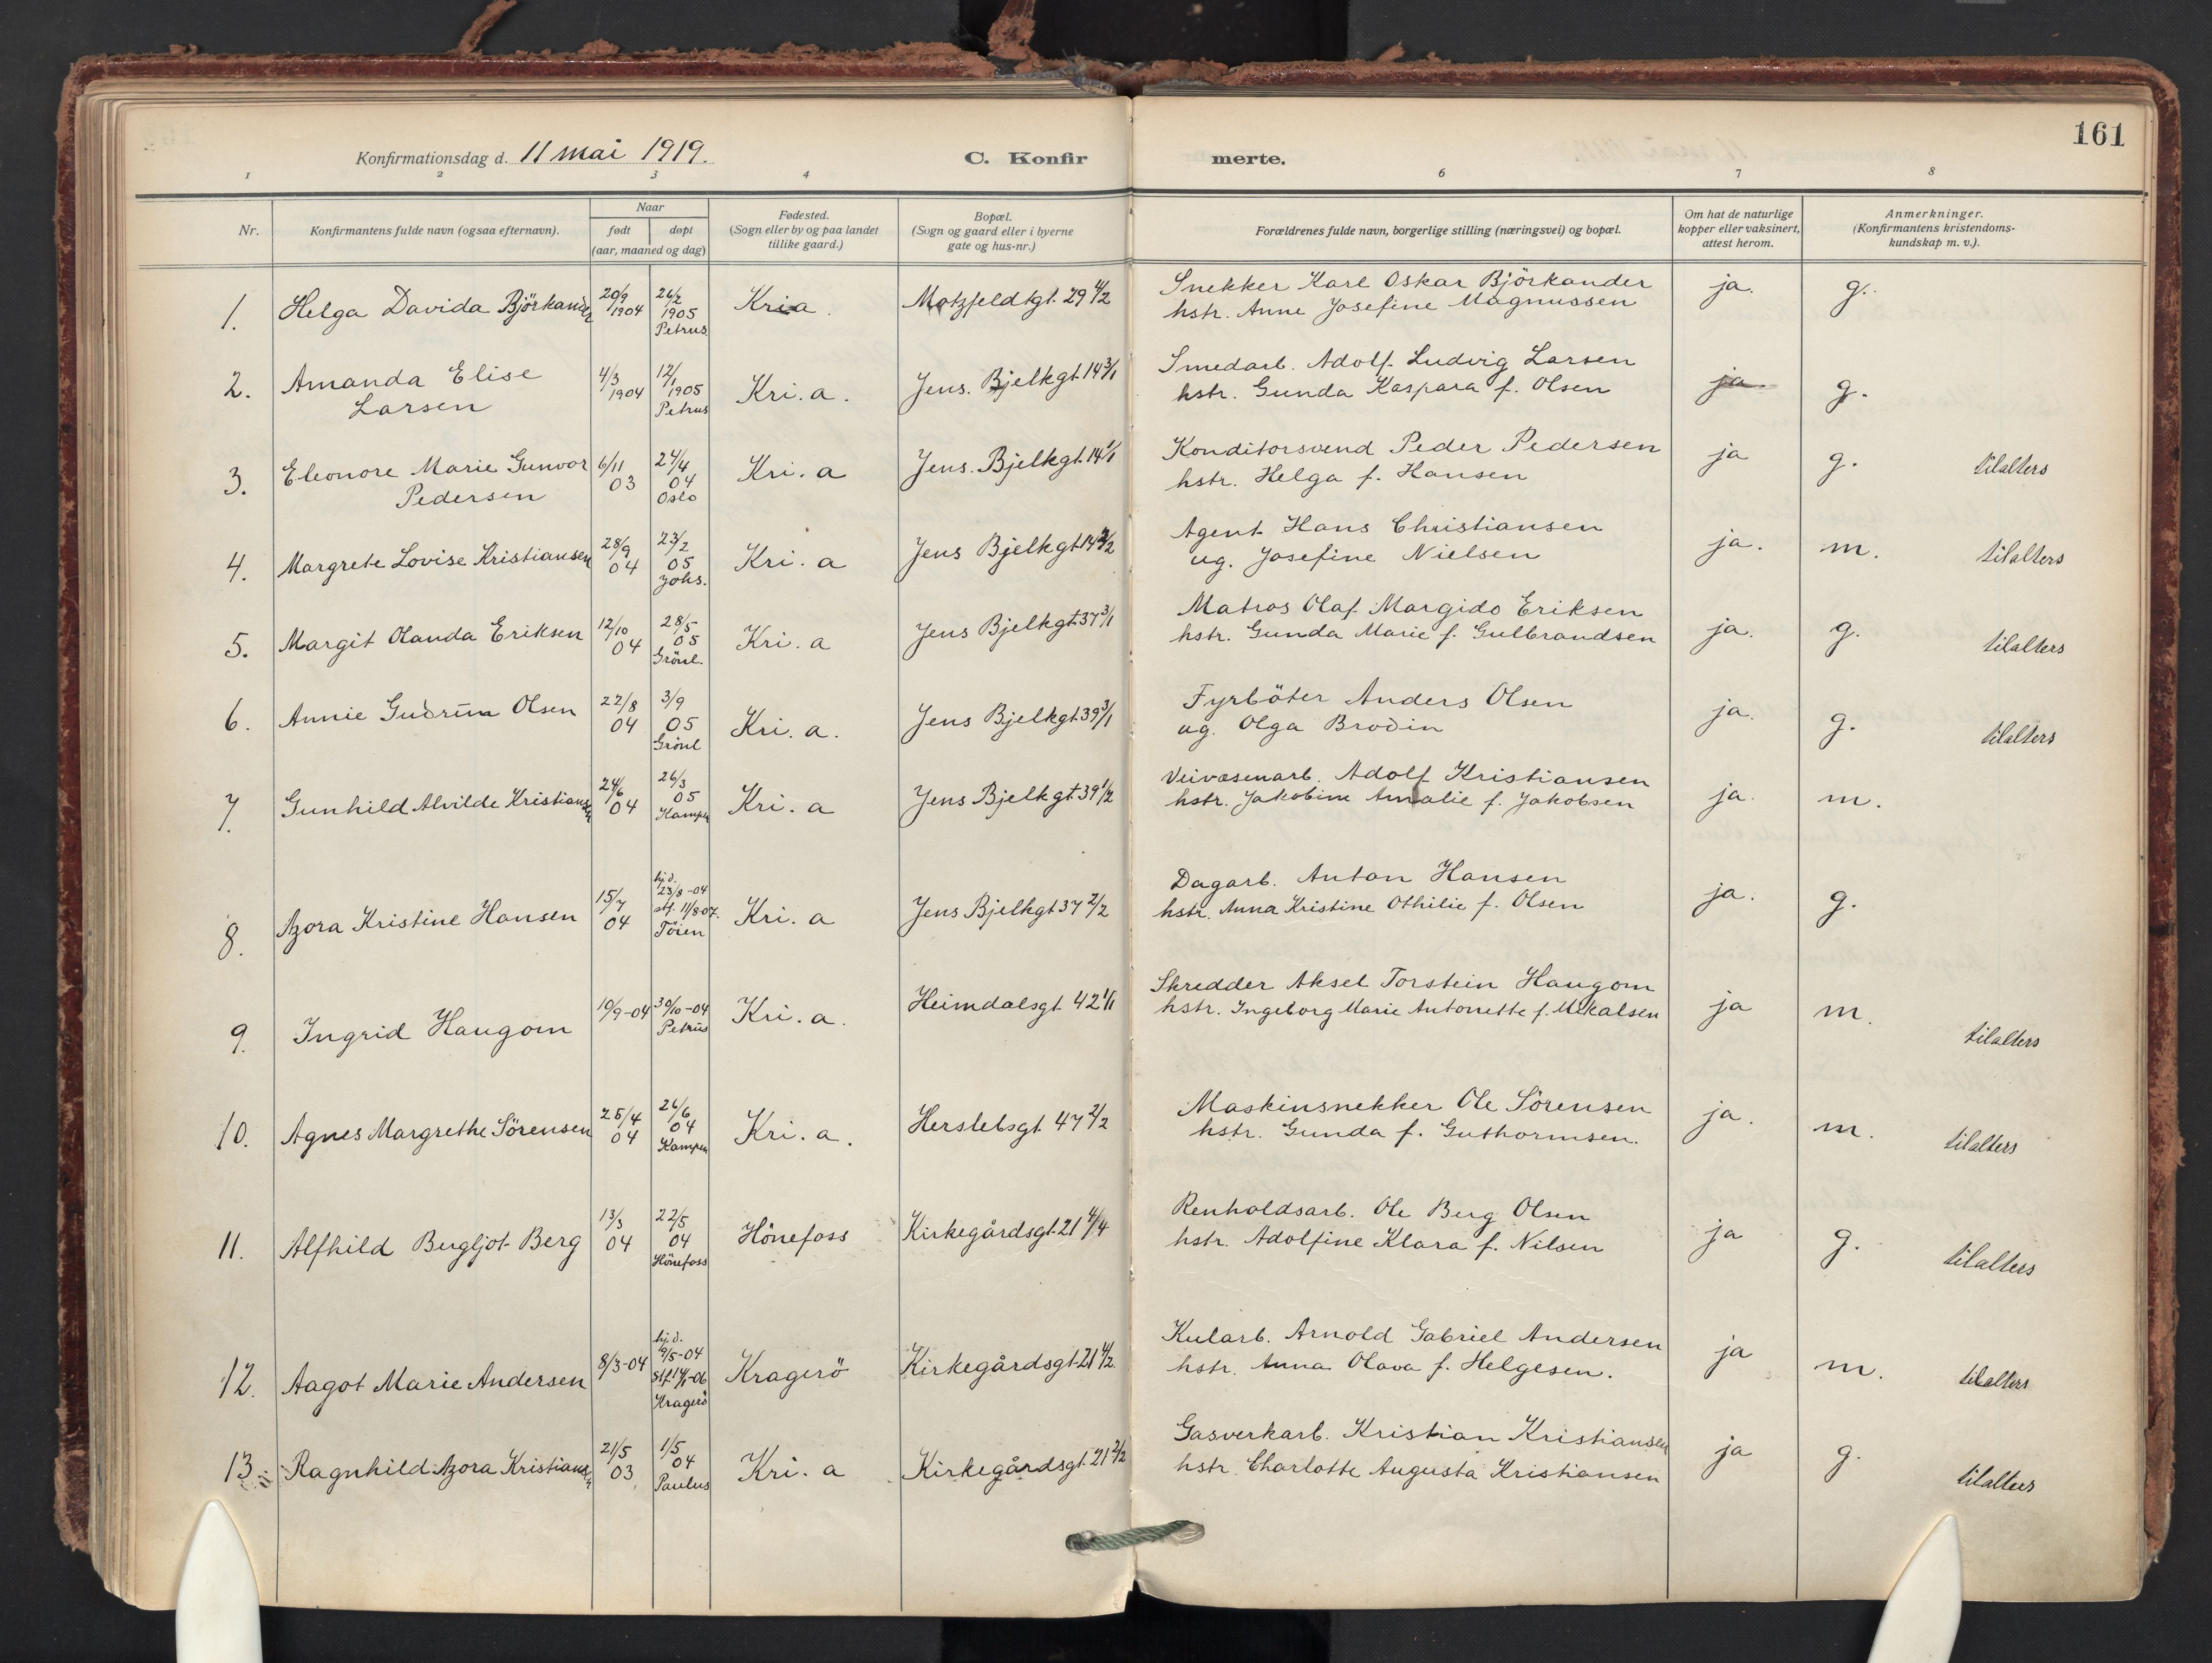 161
Konfirmationsdag d. 11 mai 1919.
C. Konfirmerte.
1 2 3 4 6 7 8
Nr.
Konfirmantens fulde navn (ogsaa efternavn).
Naar
født døpt
(aar, maaned og dag)
Fødested.
(Sogn eller by og paa landet
tillike gaard.)
Bopæl.
(Sogn og gaard eller i byerne
gate og hus-nr.)
Forældrenes fulde navn, borgerlige stilling (næringsvei) og bopæl.
Om hat de naturlige
kopper eller vaksinert,
attest herom.
Anmerkninger.
(Konfirmantens kristendoms-
kundskap m. v.).
1. Helga Davida Björkander
20/9 1904
26/2 1905 Petrus
Kria.
Motzfeldtgt. 29 4/2
Snekker Karl Oskar Björkander
hstr. Anne Josefine Magnussen
ja. g.
2. Amanda Elise
Larsen
4/3 1904
12/1 1905 Petrus
Kri.a.
Jens. Bjelkgt. 14 3/1
Smedarb. Adolf Ludvig Larsen
hstr. Gunda Kaspara f. Olsen
ja g.
3. Eleonore Marie Gunvor
Pedersen
6/11 03
24/4 04 Oslo
Kri.a
Jens. Bjelkgt. 14 1/1
Konditorsvend Peder Pedersen
hstr. Helga f. Hansen
ja g. tilalters
4. Margrete Lovise Kristiansen
28/9 04
23/2 05 Johs.
Kri.a
Jens Bjelkgt 14 3/2
Agent Hans Christiansen
ug. Josefine Nielsen
ja. m. tilalters
5. Margit Olanda Eriksen
12/10 04
28/5 05 Grönl.
Kri.a
Jens Bjelkgt 37 3/1
Matros Olaf Margido Eriksen
hstr. Gunda Marie f. Gulbrandsen
ja. g. tilalters
6. Annie Gudrun Olsen
22/8 04
3/9 05 Grönl
Kri.a.
Jens Bjelkgt. 39 3/1
Fyrböter Anders Olsen
ug. Olga Brodin
ja. g. tilalters
7. Gunhild Alvilde Kristiansen
24/6 04
26/3 05 Kampen
Kri.a
Jens Bjelkgt. 39 1/2
Veivæsenarb. Adolf Kristiansen
hstr. Jakobine Amalie f. Jakobsen
ja. m.
8. Azora Kristine Hansen
15/7 04
hj.d. 23/8-04 stf. 11/8-07. Töien
Kri.a
Jens Bjelkgt 37 2/2
Dagarb. Anton Hansen
hstr. Anna Kristine Othilie f. Olsen
ja. g.
9. Ingrid Haugom
10/9-04
30/10-04 Petrus
Kri.a.
Heimdalsgt. 42 1/1
Skredder Aksel Torstein Haugom
hstr. Ingeborg Marie Antonette f. Mikalsen
ja m. tilalters
10. Agnes Margrethe Sörensen
25/4 04
26/6 04 Kampen
Kri.a.
Herslebsgt. 47 2/2
Maskinsnekker Ole Sörensen
hstr. Gunda f. Guthormsen.
ja. m. tilalters
11. Alfhild Bergljot Berg
13/3 04
22/5 04 Hönefoss
Hönefoss
Kirkegårdsgt. 21 4/4
Renholdsarb. Ole Berg Olsen
hstr. Adolfine Klara f. Nilsen
ja g. tilalters
12. Aagot Marie Andersen
8/3-04
hj.d. 9/5-04 Kragerö
Kragerö
Kirkegårdsgt. 21 4/2
Kularb. Arnold Gabriel Andersen
hstr. Anna Olava f. Helgesen.
ja m. tilalters
13. Ragnhild Azora Kristiansen
21/5 03
1/5 04 Paulus
Kri.a
Kirkegårdsgt. 21 2/2
Gasverkarb. Kristian Kristiansen
hstr. Charlotte Augusta Kristiansen
ja g. tilalters